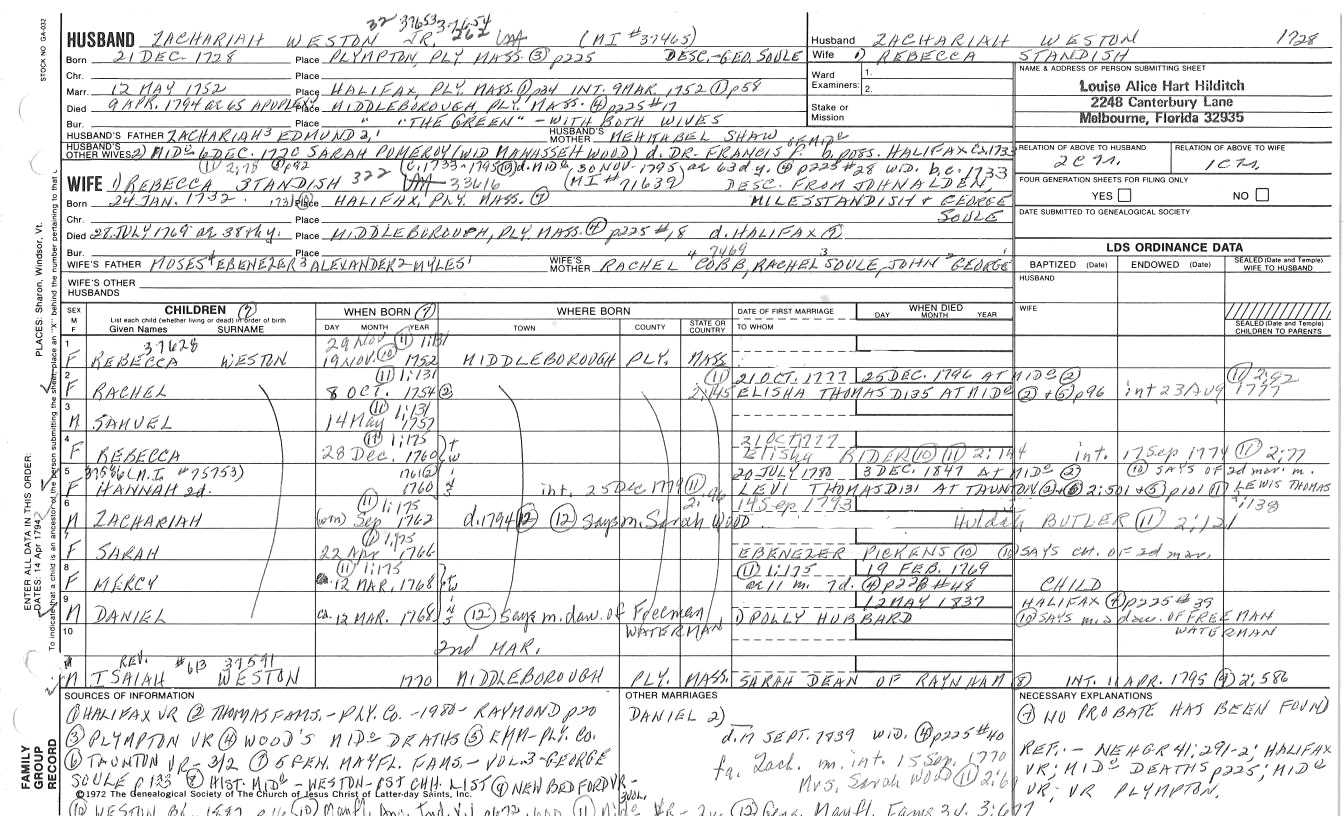 32 37653 37654
HUSBAND ZACHARIAH WESTON JR. 262 (MI #37465)
Born 21 DEC. 1728 Place PLYMPTON, PLY MASS. (3) p225 DESC.-GEO. SOULE
Chr. Place
Mar. 12 MAY 1752 Place HALIFAX, PLY. MASS. (1) p34 INT. 9 MAR. 1752 (1) p58
Died 9 APR. 1794 ae 65 APOPLEXY Place MIDDLEBOROUGH PLY. MASS. (4) p225 #17
Bur. Place " "THE GREEN" - WITH BOTH WIVES
HUSBAND'S FATHER ZACHARIAH3 EDMUND2,1 HUSBAND'S MOTHER MEHITABEL SHAW
HUSBAND'S OTHER WIVES 2) MIDo 6 DEC. 1770 SARAH POMEROY (WID MANASSEH WOOD) d. DR. FRANCIS P. poss. HALIFAX ca 1733
(11) 2:78 (5) p92 (c. 1733-1795 (10) d. MIDo, 30 NOV. 1795, ae 63d y. (4) p225 #28 WID. b.c. 1733
WIFE 1) REBECCA STANDISH 322 33616 (MI #71639) DESC. FROM JOHN ALDEN,
Born 24 JAN. 1732. Place HALIFAX, PLY. MASS. (7) MILES STANDISH & GEORGE
SOULE
Chr. Place
Died 28 JULY 1769 ae 38th y. Place MIDDLEBOROUGH, PLY. MASS. (4) p225 #18 d. HALIFAX (7)
Bur. Place
WIFE'S FATHER MOSES4 EBENEZER3 ALEXANDER2 MYLES1 WIFE'S MOTHER RACHEL4 COBB, RACHEL3 SOULE, JOHN2 GEORGE1
7469
WIFE'S OTHER HUSBANDS
Husband ZACHARIAH WESTON 1728
Wife 1) REBECCA STANDISH
Ward Examiners: 1. 2.
Stake or Mission
NAME & ADDRESS OF PERSON SUBMITTING SHEET
Louise Alice Hart Hilditch
2248 Canterbury Lane
Melbourne, Florida 32935
RELATION OF ABOVE TO HUSBAND 2CM. RELATION OF ABOVE TO WIFE 1CM.
FOUR GENERATION SHEETS FOR FILING ONLY
YES NO
DATE SUBMITTED TO GENEALOGICAL SOCIETY
LDS ORDINANCE DATA
BAPTIZED (Date) ENDOWED (Date) SEALED (Date and Temple) WIFE TO HUSBAND
HUSBAND
WIFE
SEALED (Date and Temple) CHILDREN TO PARENTS
SEX M F CHILDREN (7) List each child (whether living or dead) in order of birth Given Names SURNAME
WHEN BORN (7) DAY MONTH YEAR
WHERE BORN TOWN COUNTY STATE OR COUNTRY
DATE OF FIRST MARRIAGE TO WHOM WHEN DIED DAY MONTH YEAR
37628 29 Nov (11) 1:131
1 F REBECCA WESTON 19 NOV. (10) 1752 MIDDLEBOROUGH PLY. MASS
(11) 1:131 (11) 21 OCT. 1777 25 DEC. 1796 AT MIDo (2) (11) 2:92
2 F RACHEL 8 OCT. 1754 (2) 2:145 ELISHA THOMAS D135 AT MIDo (2) & (5) p96 int 23 Aug 1777
(11) 1:131
3 M SAMUEL 14 May 1757
(11) 1:175 21 OCT 1777
4 F REBECCA 28 Dec. 1760 Elisha RIDER (10) (11) 2:144 int. 17 Sep 1774 (11) 2:77
37586 (N.I. #75753) 1761 (2) 20 JULY 1780 3 DEC. 1847 AT MIDo (2) (10) SAYS OF 2d mar. m.
5 F HANNAH 2d. 1760 int. 25 Dec 1779 (11) 2:96 LEVI THOMAS D131 AT TAUNTON (3) & (6) 2:501 & (5) p101 (11) LEWIS THOMAS
(11) 1:175 19 Sep. 1793 2:138
6 M ZACHARIAH Sep 1762 d. 1794 (12) (12) Says m. Sarah WOOD Huldah BUTLER (11) 2:121
(11) 1:175
7 F SARAH 22 Apr 1766 EBENEZER PICKENS (10) (10) SAYS CH. OF 2d mar.
(11) 1:175 (11) 1:175 19 FEB. 1769
8 F MERCY ca. 12 MAR. 1768 ae 11 m. 7d. (4) p228 #48 CHILD
12 MAY 1837 HALIFAX (4) p225 #39
9 M DANIEL ca. 12 MAR. 1768 (12) Says m. dau. of Freeman WATERMAN 1) POLLY HUBBARD (10) SAYS m. a daw. OF FREEMAN WATERMAN
10 2nd MAR.
REV. #613 37591
11 M ISAIAH WESTON 1770 MIDDLEBOROUGH PLY. MASS. SARAH DEAN OF RAYNHAM (8) INT. 11 APR. 1795 (9) 2:586
SOURCES OF INFORMATION
(1) HALIFAX VR (2) THOMAS FAMS.-PLY. CO.-1980-RAYMOND p20
(3) PLYMPTON VR (4) WOOD'S MIDo DEATHS (5) EMM-PLY. CO.
(6) TAUNTON VR-3/2 (7) 5 GEN. MAYFL. FAMS.-VOL.3-GEORGE
SOULE p133 (8) HIST. MIDo-WESTON-1ST CHH. LIST (9) NEW BEDFORD VR-
©1972 The Genealogical Society of The Church of Jesus Christ of Latter-day Saints, Inc.
OTHER MARRIAGES
DANIEL 2)
d. 17 SEPT. 1839 WID. (4) p225 #40
fa. Zach. m. int. 15 Sep. 1770
Mrs. Sarah WOOD (11) 2:69
NECESSARY EXPLANATIONS
(7) NO PROBATE HAS BEEN FOUND
REF. - NEHGR 41:291-2; HALIFAX
VR; MIDo DEATHS p225; MIDo
VR; VR PLYMPTON.
STOCK NO. GA-032
PLACES: Sharon, Windsor, Vt.
ENTER ALL DATA IN THIS ORDER:
DATES: 14 Apr 1794
FAMILY GROUP RECORD